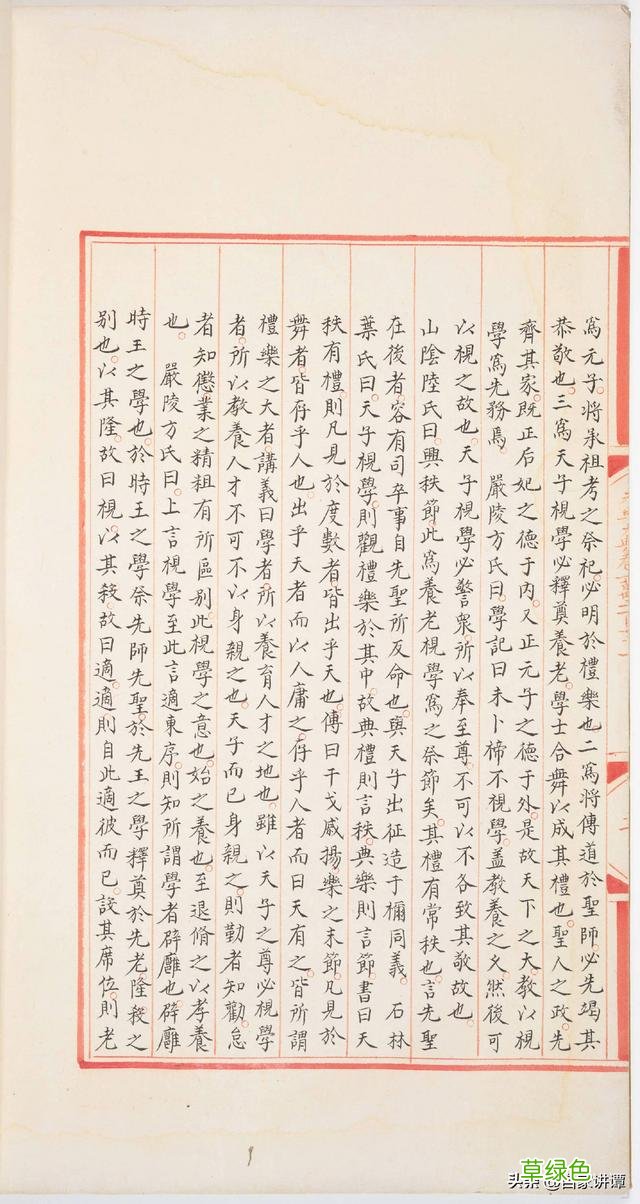 為元子將承祖考之祭祀必明於禮樂也二為將傳道於聖師必先竭其
恭敬也三為天子視學必釋奠養老學士合舞以成其禮也聖人之政先
齊其家既正后妃之德于內又正元子之德于外是故天下之大教以視
學為先務焉　嚴陵方氏曰學記曰未卜禘不視學蓋教養之久然後可
以視之故也天子視學必警衆所以奉至尊不可以不各致其敬故也
山陰陸氏曰興秩節此為養老視學為之祭節矣其禮有常秩也言先聖
在後者容有司卒事自先聖所反命也與天子出征造于禰同義　石林
葉氏曰天子視學則觀禮樂於其中故典禮則言秩典樂則言節書曰天
秩有禮則凡見於度數者皆出乎天也傳曰干戈戚揚樂之末節凡見於
舞者皆存乎人也出乎天者而以人庸之存乎人者而曰天有之皆所謂
禮樂之大者講義曰學者所以養育人才之地也雖以天子之尊必視學
者所以教養人才不可不以身親之也天子而已身親之則勤者知勸怠
者知懲業之精粗有所區别此視學之意也始之養也至退脩之以孝養
也　嚴陵方氏曰上言視學至此言適東序則知所謂學者辟廱也辟廱
時王之學也於時王之學祭先師先聖於先王之學釋奠於先老隆殺之
别也以其隆故曰視以其殺故曰適適則自此適彼而已設其席位則老
头条 @吕家讲谭
草绿色